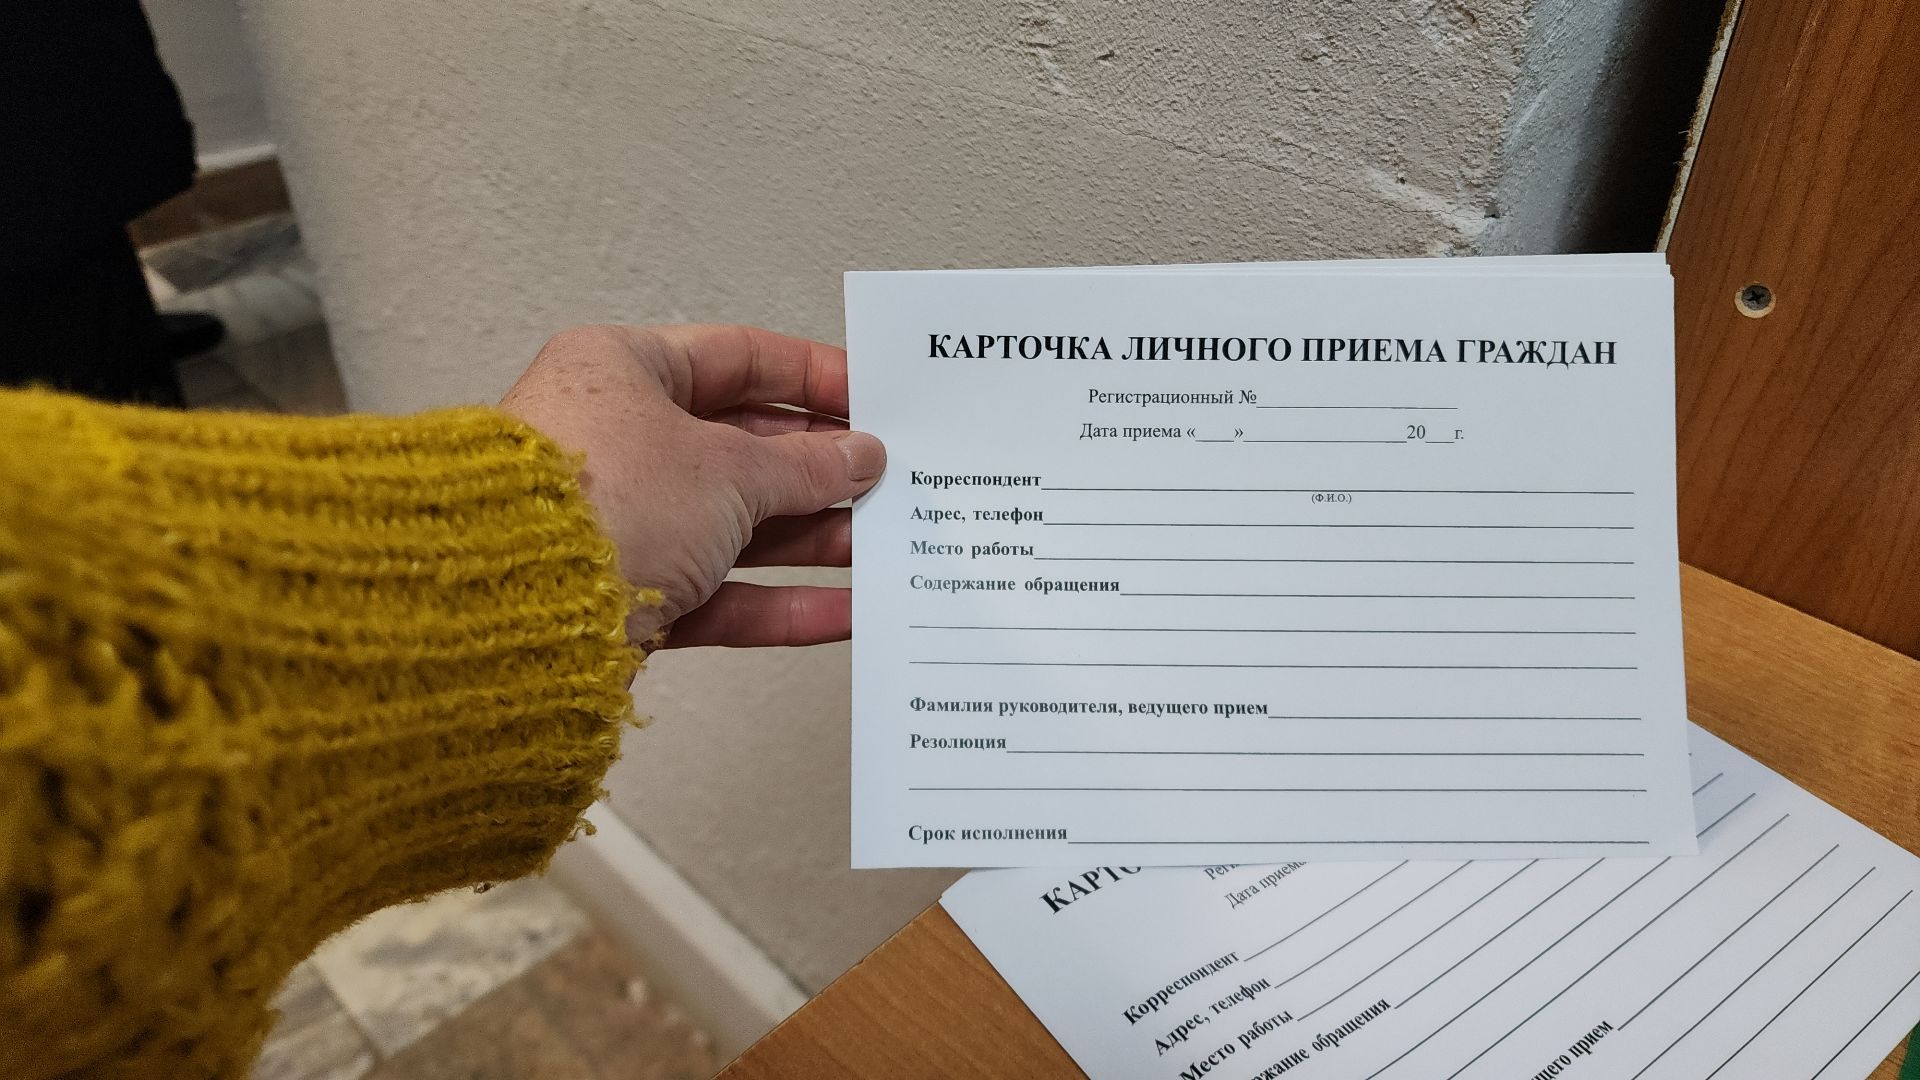 КАРТОЧКА ЛИЧНОГО ПРИЕМА ГРАЖДАН
Регистрационный №____________________
Дата приема «____»_________________20___г.
Корреспондент
(Ф.И.О.)
Адрес, телефон
Место работы
Содержание обращения
Фамилия руководителя, ведущего прием
Резолюция
Срок исполнения
Дата приема
Корреспондент
Адрес, телефон
Место работы
прием